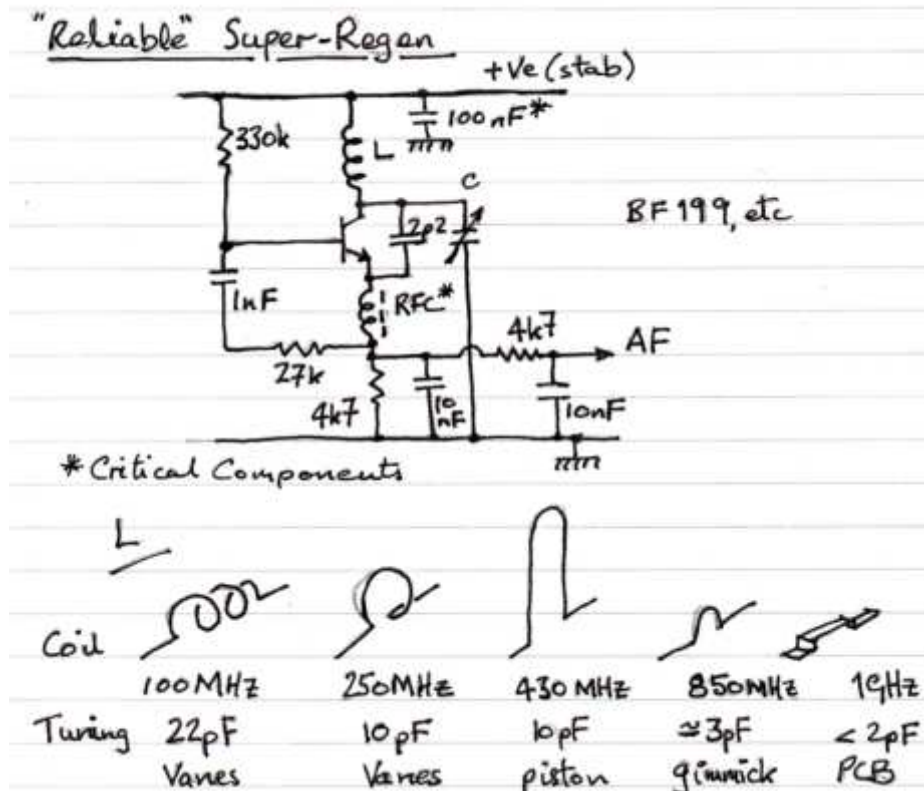 "Reliable" Super-Regen
+Ve (stab)
100nF*
330k
L
C
2p2
BF199, etc
1nF
RFC*
4k7
AF
27k
4k7
10
nF
10nF
*Critical Components
L
Coil
100MHz 250MHz 430MHz 850MHz 1GHz
Tuning 22pF 10pF 10pF ≈3pF < 2pF
Vanes Vanes piston gimmick PCB